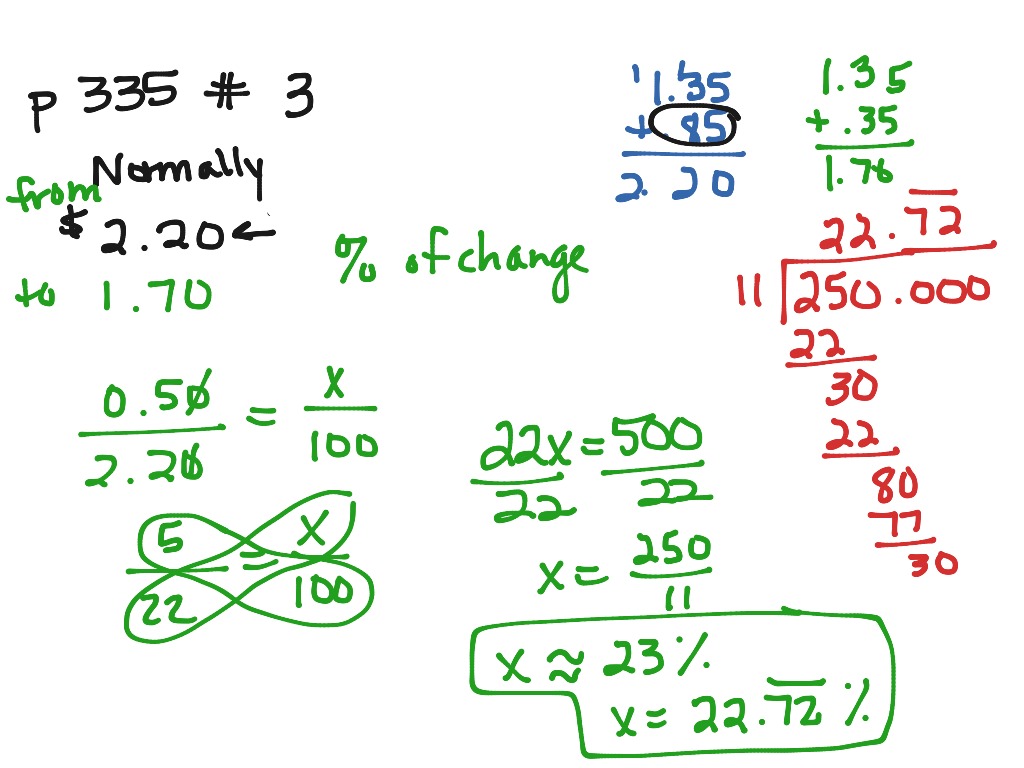 p 335 # 3
Normally
from
$ 2.20 ←
to 1.70
% of change
1
1.35
+ .85
2.20
1.35
+ .35
1.70
22.72
11 250.000
22
30
22
80
77
30
0.50 = x
2.20 100
5 = x
22 100
22x = 500
22 22
x = 250
11
x ≈ 23%
x = 22.72%